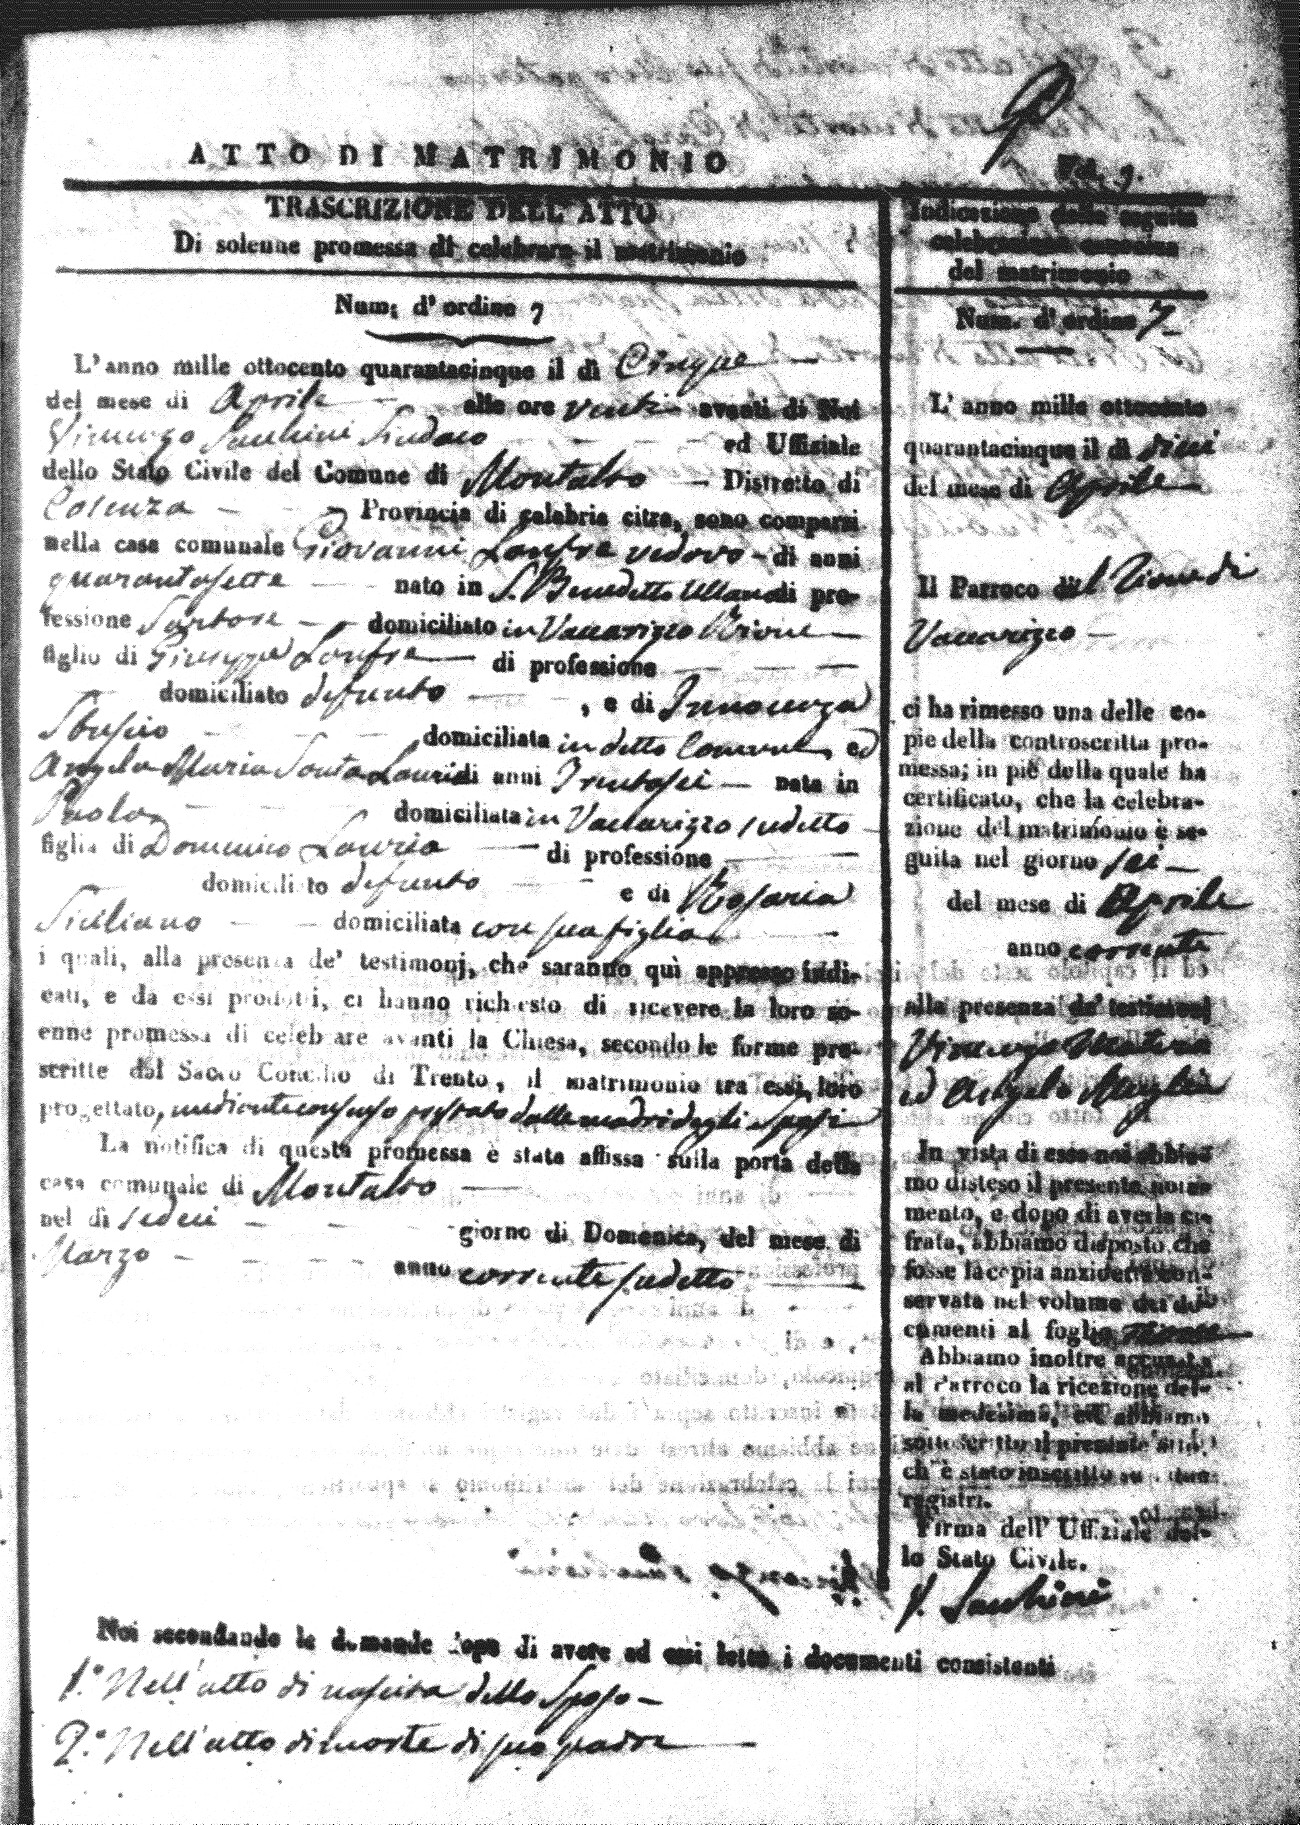 ATTO DI MATRIMONIO
TRASCRIZIONE DELL'ATTO
Di solenne promessa di celebrare il matrimonio
Num. d'ordine 7
L'anno mille ottocento quarantacinque il dì Cinque
del mese di Aprile alle ore venti avanti di Noi
Vincenzo Sacchini Sindaco ed Uffiziale
dello Stato Civile del Comune di Montalto Distretto di
Cosenza Provincia di calabria citra, sono comparsi
nella casa comunale Giovanni Lanfre vedovo di anni
quarantasette nato in S. Benedetto Ullano di pro-
fessione Sartore domiciliato in Vaccarizzo Rione
figlio di Giuseppe Lanfre di professione
domiciliato defunto , e di Innocenza
domiciliata in detto Comune, ed
Angela Maria Santa Lauria di anni Trentasei nata in
Paola domiciliata in Vaccarizzo sudetto
figlia di Domenico Lauria di professione
domiciliato defunto e di Rosaria
Siciliano domiciliata con sua figlia
i quali, alla presenza de' testimonj, che saranno quì appresso indi-
cati, e da essi prodotti, ci hanno richiesto di ricevere la loro so-
enne promessa di celebrare avanti la Chiesa, secondo le forme pre-
scritte dal Sacro Concilio di Trento, il matrimonio tra essi loro
progettato, mediante consenso prestato dalle madri degli sposi
La notifica di questa promessa è stata affissa sulla porta della
casa comunale di Montalto
nel dì sedeci giorno di Domenica, del mese di
Marzo anno corrente sudetto
Noi secondando le domande dopo di avere ad essi letto i documenti consistenti
1.° Nell'atto di nascita dello Sposo
2.° Nell'atto di morte di suo padre
Indicazione della seguita
celebrazione canonica
del matrimonio
Num. d'ordine 7
L'anno mille ottocento
quarantacinque il dì dieci
del mese di Aprile
Il Parroco del Rione di
Vaccarizzo
ci ha rimesso una delle co-
pie della controscritta pro-
messa; in piè della quale ha
certificato, che la celebra-
zione del matrimonio è se-
guita nel giorno sei
del mese di Aprile
anno corrente
alla presenza de' testimonj
Vincenzo Matera
ed Angelo
In vista di esso noi abbia-
mo disteso il presente notta-
mento, e dopo di averla ci-
frata, abbiamo disposto che
fosse la copia anzidetta con-
servata nel volume dei do-
cumenti al foglio
Abbiamo inoltre accusata
al Parroco la ricezione del-
la medesima, ed abbiamo
sottoscritto il presente atto,
ch'è stato inscritto su i due
registri.
Firma dell' Uffiziale del-
lo Stato Civile.
V. Sacchini